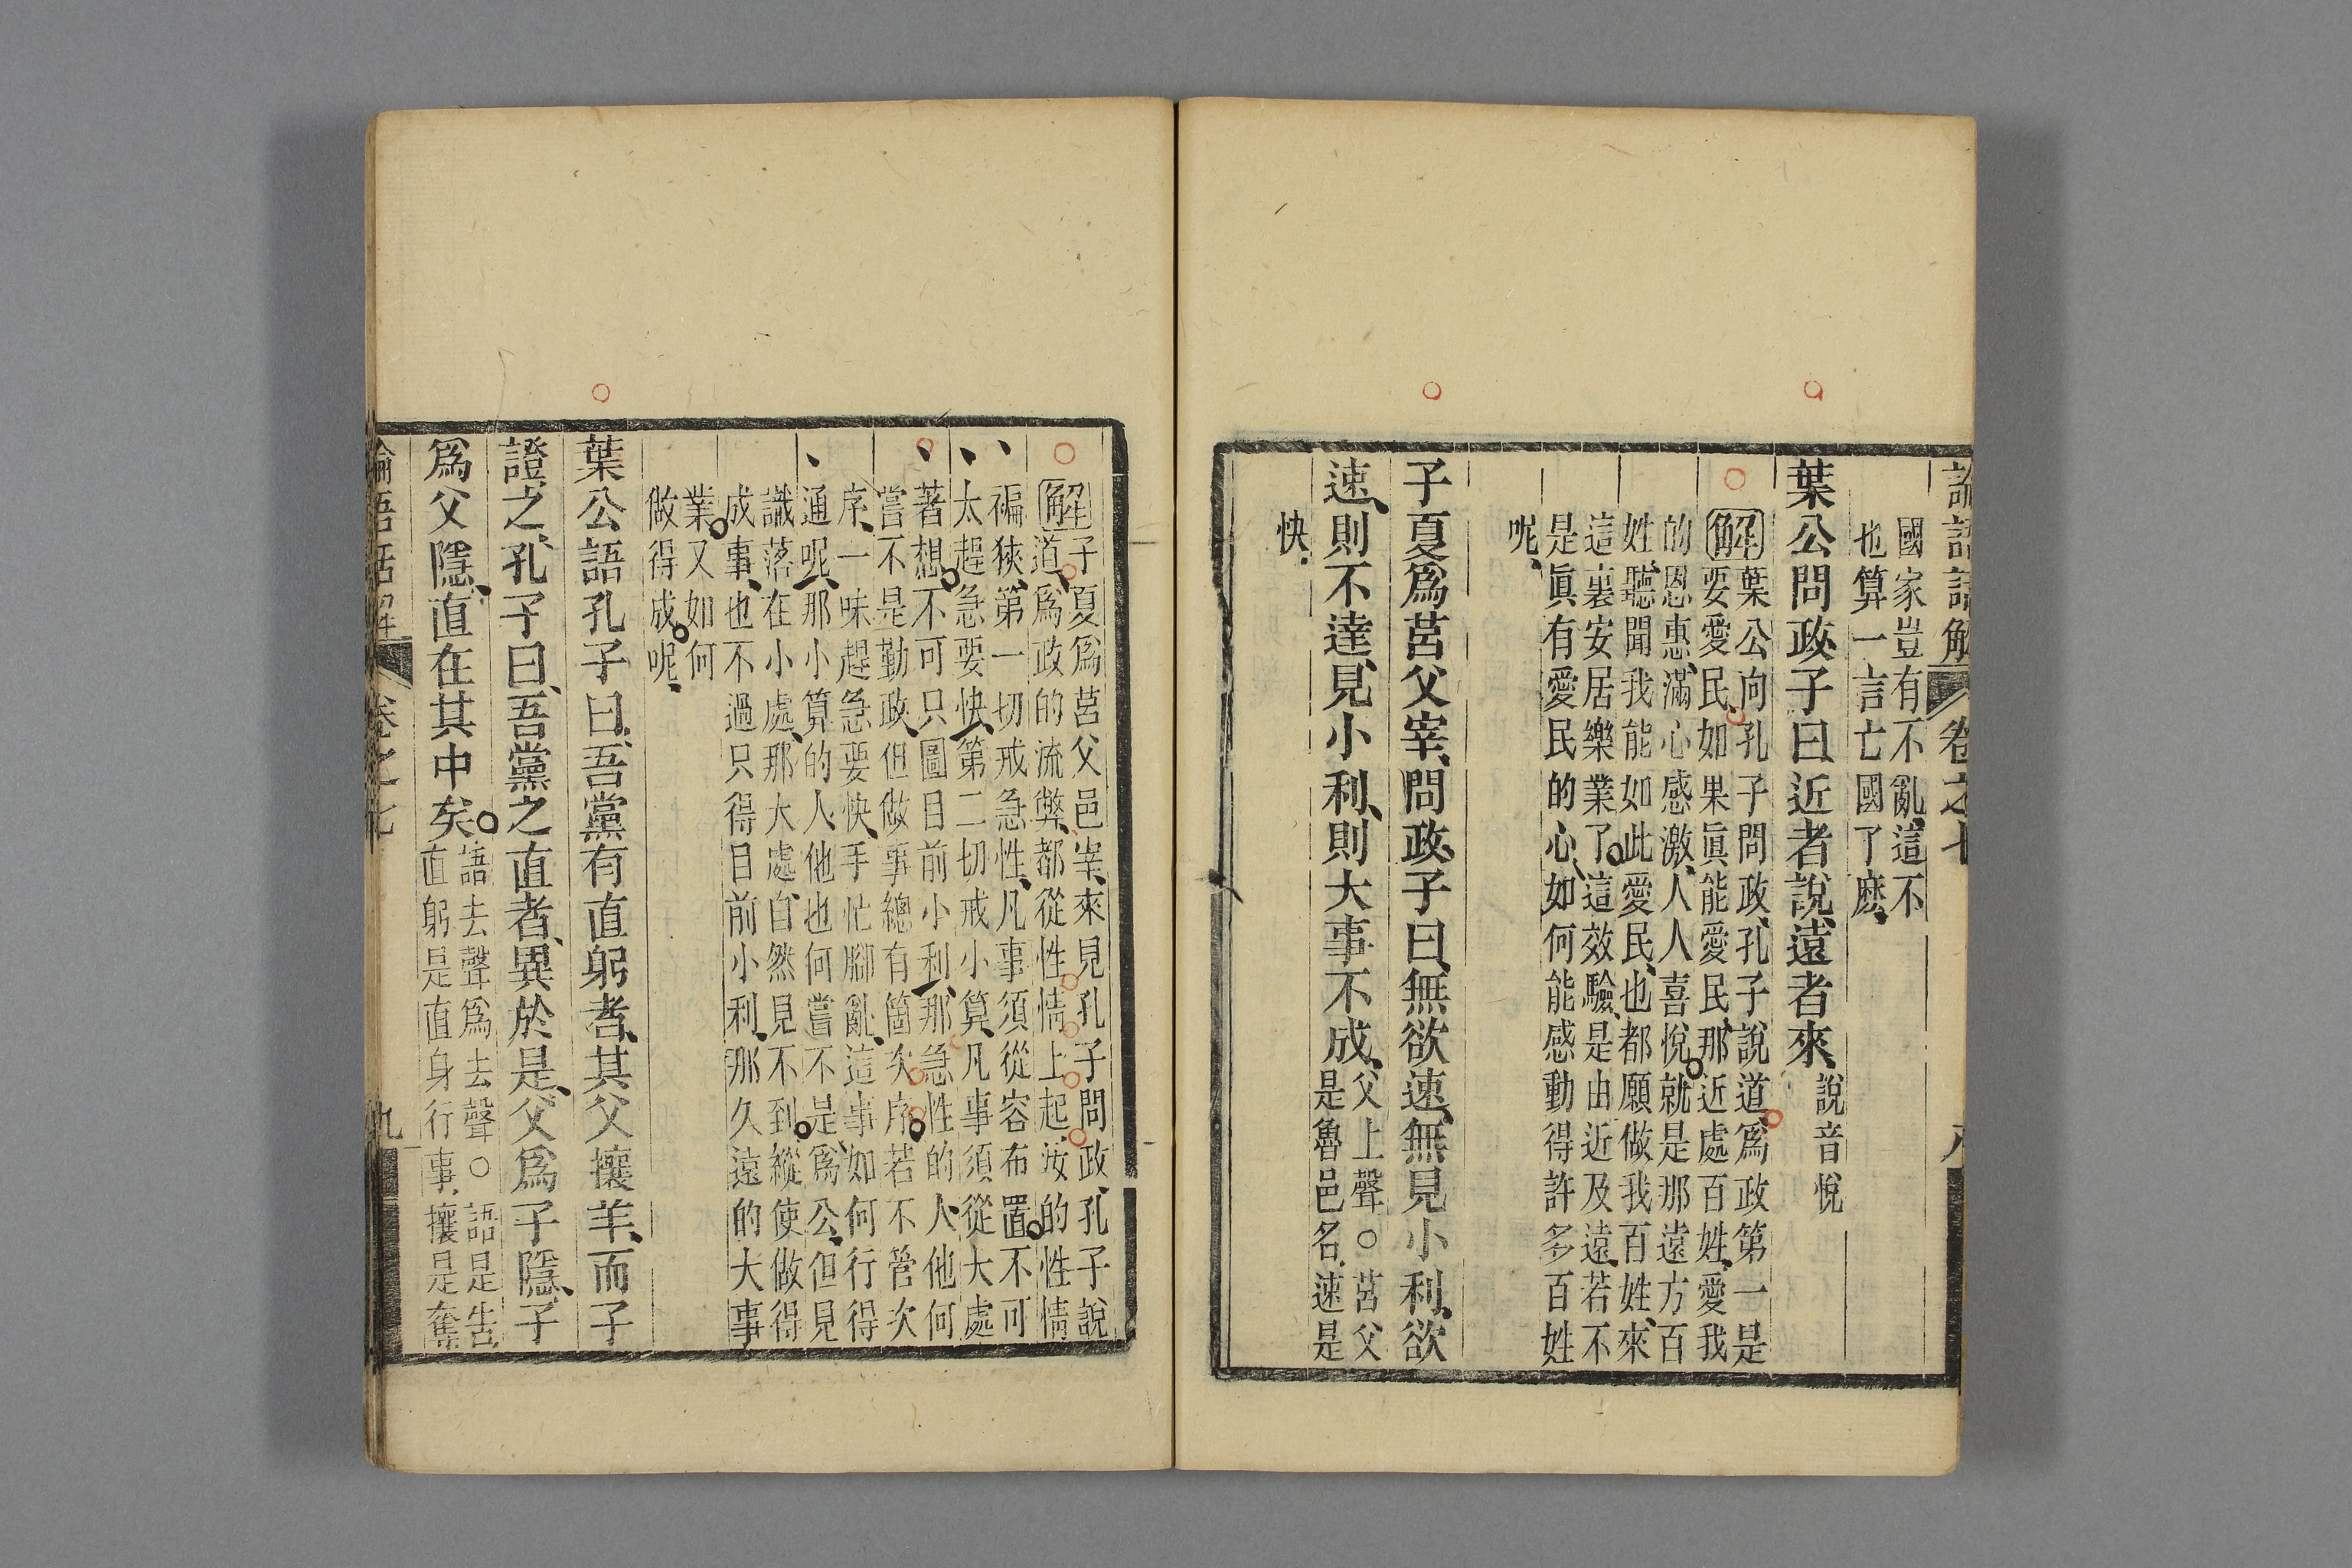 論語話解 卷之七 八
國家豈有不亂、這不
也算一言亡國了麽、
葉公問政、子曰、近者說、遠者來、說音悅
解葉公向孔子問政、孔子說道、爲政第一是
要愛民、如果眞能愛民、那近處百姓、愛我
的恩惠、滿心感激、人人喜悅、就是那遠方百
姓、聽聞我能如此愛民、也都願做我百姓、來
這裏安居樂業了、這效驗、是由近及遠、若不
是眞有愛民的心、如何能感動得許多百姓
呢、
子夏爲莒父宰、問政、子曰、無欲速、無見小利、欲
速、則不達、見小利、則大事不成、父上聲○莒父
是魯邑名、速是
快、
解子夏爲莒父邑宰、來見孔子問政、孔子說
道、爲政的流弊、都從性情上起、汝的性情
褊狹、第一切戒急性、凡事須從容布置、不可
太趕急要快、第二切戒小算、凡事須從大處
著想、不可只圖目前小利、那急性的人、他何
嘗不是勤政、但做事總有箇次序、若不管次
序、一味趕急要快、手忙腳亂、這事如何行得
通呢、那小算的人、他也何嘗不是爲公、但見
識落在小處、那大處、自然見不到、縱使做得
成事、也不過只得目前小利、那久遠的大事
業、又如何
做得成呢、
葉公語孔子曰、吾黨有直躬者、其父攘羊、而子
證之、孔子曰、吾黨之直者、異於是、父爲子隱、子
爲父隱、直在其中矣、語去聲爲去聲○語是告、
直躬是直身行事、攘是奪
論語話解 卷之七 九